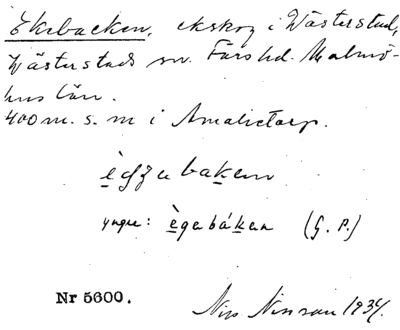 Ekebacken, ekskog i Västerstad,
Västerstads sn. Färs hd. Malmö-
hus län.
400 m. s. m i Amalietorp.
yngre: ègabákan (G. P.)
Nr 5600.
Nils Nilsson 1934.